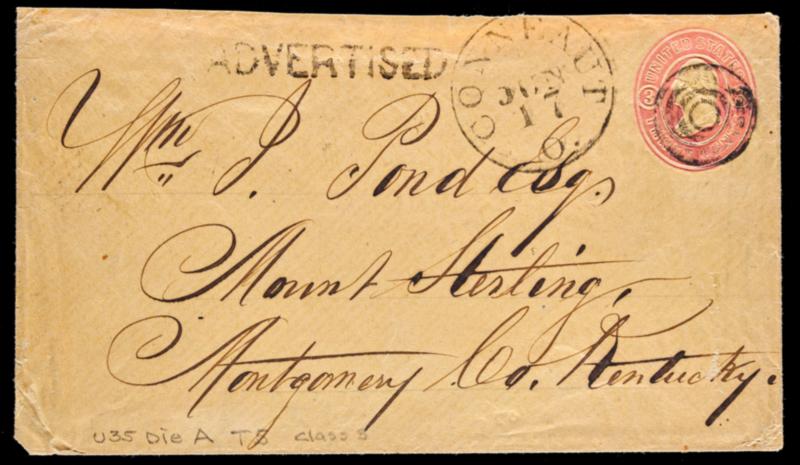 ADVERTISED
CONNEAUT
JUN
17
O.
UNITED STATES
Wm. J. Pond Esq.
Mount Sterling,
Montgomery Co. Kentucky.
U35 Die A T5 class 3